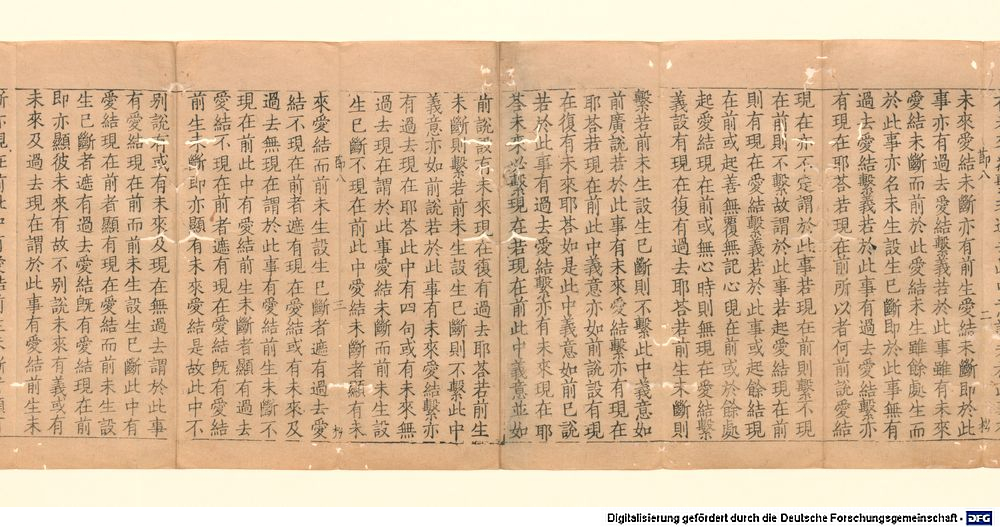 未來愛結未斷亦有前生愛結未斷即於此
事亦有過去愛結繫義若於此事雖有未來
愛結未斷而前於此愛結未生雖餘處生而
於此事亦名未生設生已斷即於此事無有
過去愛結繫義若於此事有過去愛結繫亦
有現在耶荅若現在前所以者何前說愛結
現在亦不定謂於此事若現在前則繫不現
在前則不繫故謂於此事若起愛結現在前
則有現在愛結繫義若於此事或起餘結現
在前或起善無覆無記心現在前或於餘處
起愛結現在前或無心時則無現在愛結繫
義設有現在復有過去耶荅若前生未斷則
繫若前未生設生已斷則不繫此中義意如
前廣說若於此事有未來愛結繫亦有現在
耶荅若現在前此中義意亦如前說設有現
在復有未來耶荅如是此中義意如前已說
若於此事有過去愛結繫亦有未來現在耶
荅未來必繫現在若現在前此中義意並如
前說設有未來現在復有過去耶荅若前生
未斷則繫若前未生設生已斷則不繫此中
義意亦如前說若於此事有未來愛結繫亦
有過去現在耶荅此中有四句或有未來無
過去現在謂於此事愛結未斷而前未生設
生已斷不現在前此中愛結未斷者顯有未
來愛結而前未生設生已斷者遮有過去愛
結不現在前者遮有現在愛結或有未來及
過去無現在謂於此事有愛結前生未斷不
現在前此中有愛結前生未斷者顯有過去
愛結不現在前者遮有現在愛結既有愛結
前生未斷即亦顯有未來愛結是故此中不
別說之或有未來及現在無過去謂於此事
有愛結現在前而前未生設生已斷此中有
愛結現在前者顯有現在愛結而前未生設
生已斷者遮有過去愛結既有愛結現在前
即亦顯彼未來有故不別說未來有義或有
未來及過去現在謂於此事有愛結前生未
節八
二
節八
三
Digitalisierung gefördert durch die Deutsche Forschungsgemeinschaft - DFG